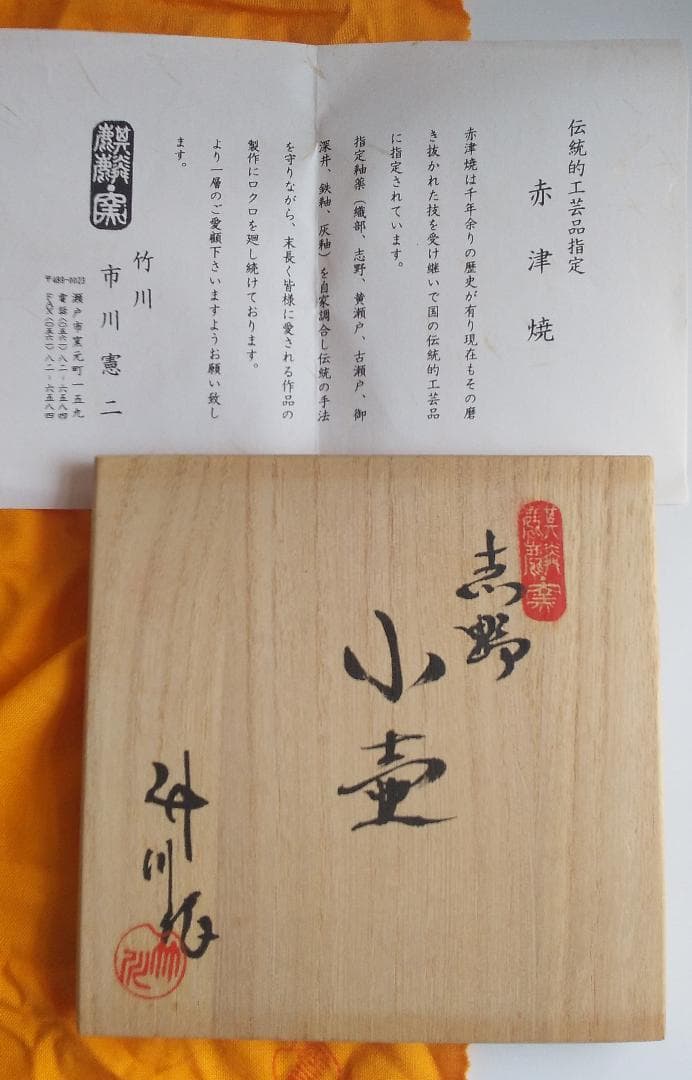 伝統的工芸品指定
赤津焼
赤津焼は千年余りの歴史が有り現在もその磨
き抜かれた技を受け継いで国の伝統的工芸品
に指定されています。
指定釉薬（織部、志野、黄瀬戸、古瀬戸、御
深井、鉄釉、灰釉）を自家調合し伝統の手法
を守りながら、末長く皆様に愛される作品の
製作にロクロを廻し続けております。
より一層のご愛顧下さいますようお願い致し
ます。
麒麟窯
竹川
市川憲二
〒489-0023
瀬戸市窯元町一五九
電話(〇五六一)八二-六五八四
FAX(〇五六一)八二-六五八四
麒麟窯
志野
小壷
竹川作
竹川